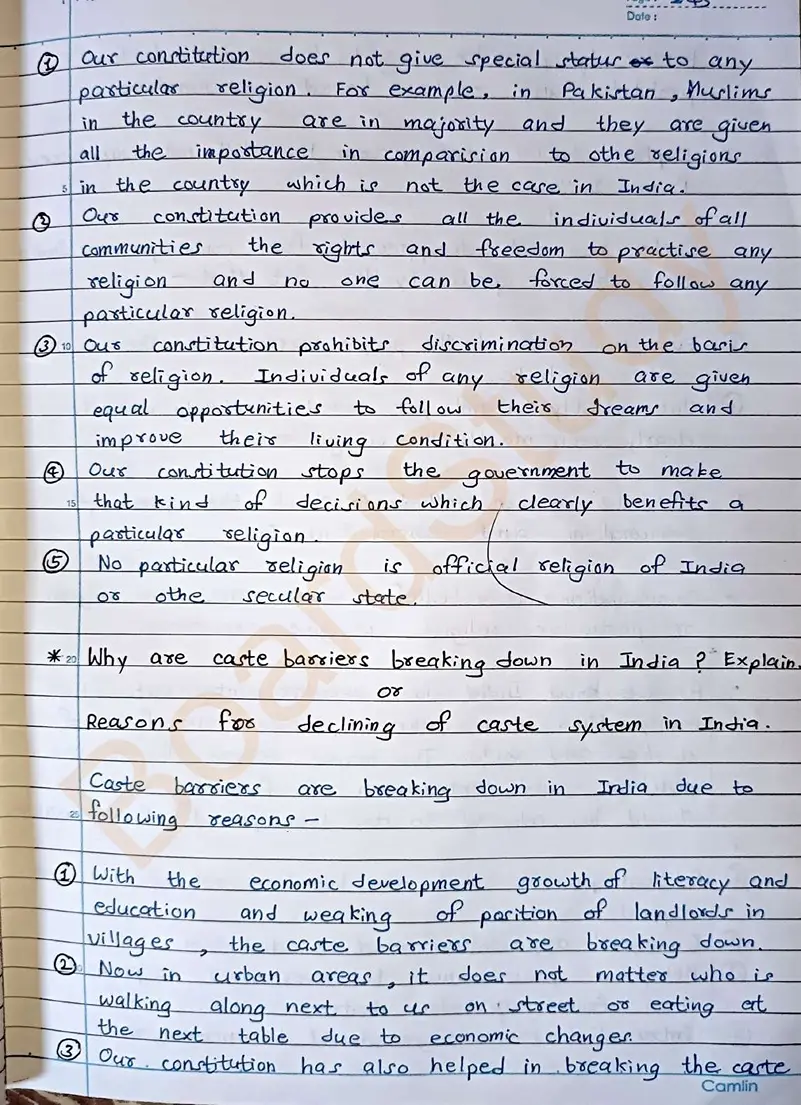 Date :
① Our constitution does not give special status to any
particular religion. For example, in Pakistan, Muslims
in the country are in majority and they are given
all the importance in comparision to othe religions
5 in the country which is not the case in India.
② Our constitution provides all the individuals of all
communities the rights and freedom to practise any
religion and no one can be forced to follow any
particular religion.
③ 10 Our constitution prohibits discrimination on the basis
of religion. Individuals of any religion are given
equal opportunities to follow their dreams and
improve their living condition.
④ Our constitution stops the government to make
15 that kind of decisions which clearly benefits a
particular religion.
⑤ No particular religion is official religion of India
or othe secular state.
* 20 Why are caste barriers breaking down in India ? Explain.
or
Reasons for declining of caste system in India.
Caste barriers are breaking down in India due to
25 following reasons -
① With the economic development growth of literacy and
education and weaking of position of landlords in
villages, the caste barriers are breaking down.
② Now in urban areas, it does not matter who is
walking along next to us on street or eating at
the next table due to economic changes.
③ Our constitution has also helped in breaking the caste
Camlin
BoardStudy